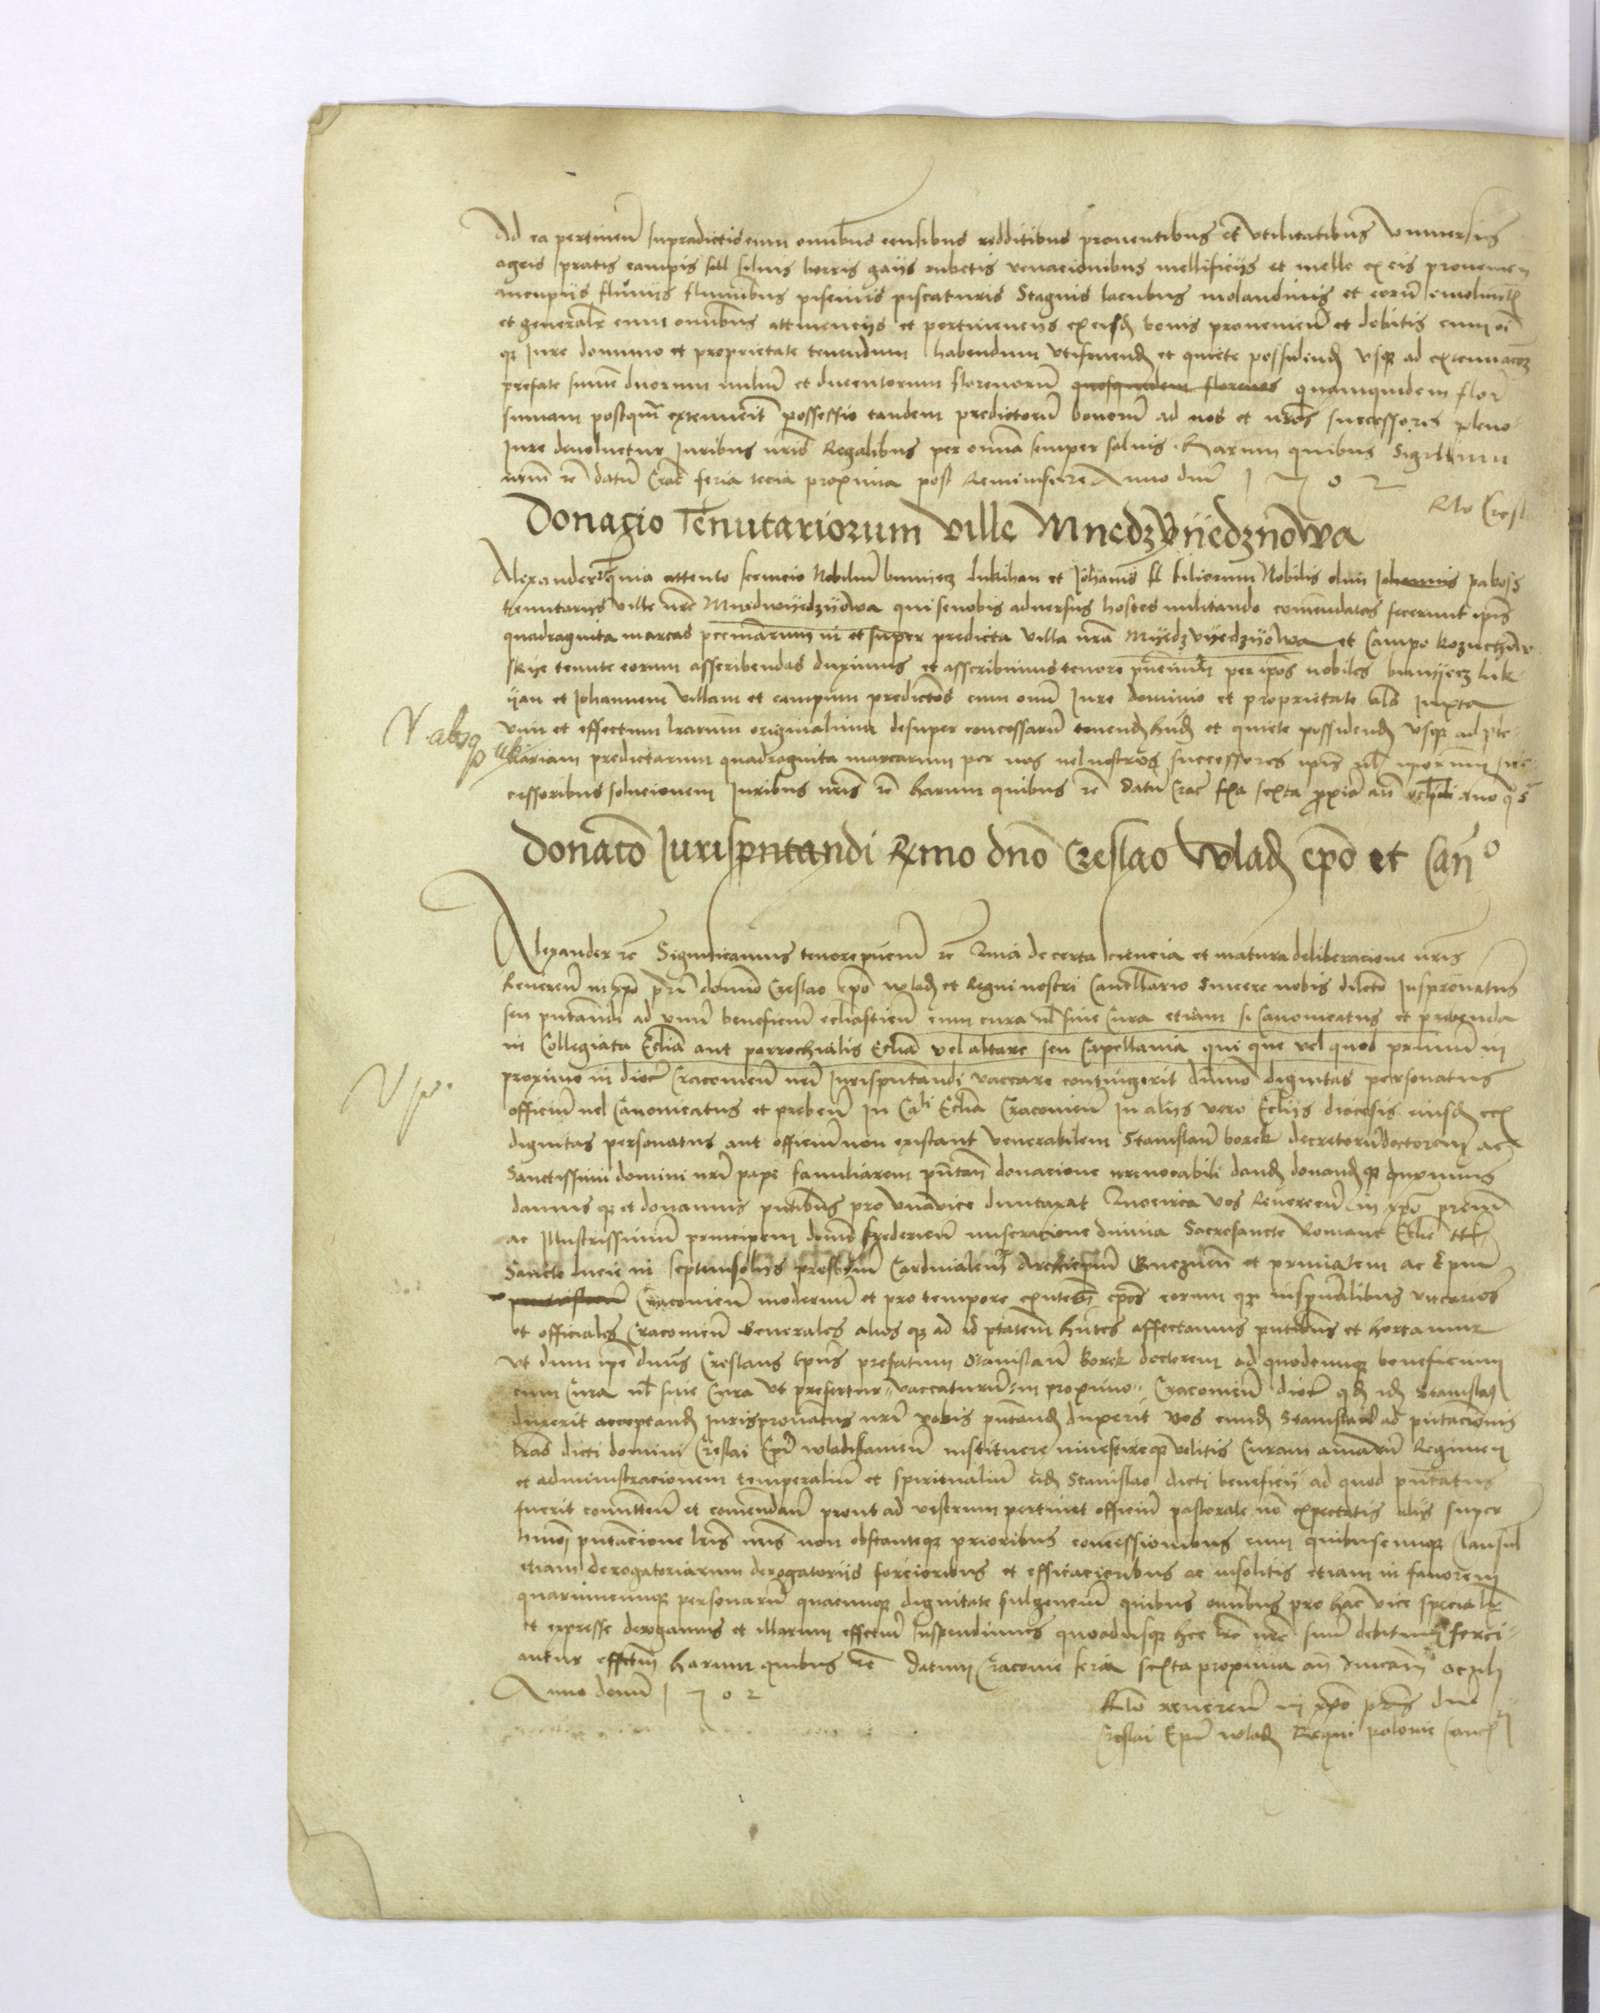 Ad ea pertinen̄ supradictis cum omībus censibus redditibus proventibus et utilitatibus Universis
agris pratis campis silvis borris gaiis rubetis venacionibus mellificiis et melle ex eis provenien̄
aucupiis fluviis fluminibus piscinis piscaturis Stagnis lacubus molandinis et eorū emolimētis
et generalr̄ cum omībus attinenciis et pertinenciis ex eisdē bonis provenien̄ et debitis cum oī
qʒ Jure dominio et proprietate tenendum habendum utifruendū et quiete possidendū usqʒ ad extenuacōʒ
prefate sum̄e duorum milium et ducentorum florenorū quosquidem florenos quamquidem flor̄
summam postqm̄ extenuerit possessio tandem predictorū bonorū ad nos et nr̄os successores pleno
Jure devolvetur Juribus nr̄is Regalibus per om̄ia semper salvis. Harum quibus Sigillum
nr̄um rc̄ datū Crac̄ feria tercia proxima post Reminiscere Anno dnī 1502
Rlo Cresl
Donacio Tenutariorum ville Mnedzvÿedznōwa
Alexander rc̄ quia attento servicio Nobiliū bunyecz Lukihan et Johānis fl filiorum Nobilis olim Johannis pabosz
tenutariis ville nr̄e Mnedwyedzyowa qui se nobis adversus hostes militando comēndatos fecerunt ipīs
quadraginta marcas pecuniarum in et super predicta villa nr̄a Myedzvyedzyowa et Campo Kozuchow
skye tenute eorum asscribendas duximus et asscribimus tenore pn̄cium per ipsos nobiles bunyecz Luk
yan et Johannem villam et campum predictos cum omī Jure dominio et proprietate Juxta
vim et effectum lrarum originalium desuper concessarū tenendū hndū et quiete possidendū usqʒ ad ple
V. absqʒ
nariam predictarum quadraginta marcarum per nos vel nostros successores ipīs vl̄ ipōrum suc
cessoribus solucionem Juribus nr̄is rc̄ harum quibus rc̄ datū Crac̄ fria sexta proxīa an̄ Anno qo S
Donacō Jurispn̄tandi Rmo dnō Creslao Wladi ep̄o et Can̄o
Alexander rc̄ Significamus tenore pn̄ciū rc̄ Quia de certa sciencia et matura deliberacione nr̄is
Reveren̄ in xp̄o pr̄i domīo Creslao ep̄o wladi et Regni nostri Cancellario Sincere nobis dilecto Juspronatus
seu pn̄tandi ad unū beneficiū ecliasticū cum cura vl̄ sine Cura etiam si Canonicatus et prebenda
in Collegiata Eclīa aut parrochialis Eclīa vel altare seu Capellania qui que vel quod primum in
proximo in dioc̄ Cracovien̄ nr̄i Jurispn̄tandi vaccare contingerit dum̄o dignitas personatus
officiū vel Canonicatus et preben̄ in Cali Eclīa Cracovien̄ in aliis vero Ecliis diocesis eiusdē
dignitas personatus aut officiū non existant venerabilem Stanislaū borek decretorū doctorem ac
Sanctissimi domini nr̄i pape familiarem pn̄tan̄ donacione irrevocabili dandū donandū qʒ duximus
damus qʒ et donamus pn̄tibus pro una vice duntaxat Quocirca vos Reveren̄ in xp̄o prem̄
ac Illustrissimū principem domīū Fredericū miseracione divina Sacrosancte Romane Eclīe ttli
Sancte lucie in septemsoliis presbiterū Cardinalem Archiepūm Gneznen̄ et primatem ac Epūm
Cracovien̄ modernū et pro tempore existen̄ ep̄os eorum qʒ in spualibus vicarios
et officiales Cracovien̄ Generales alios qʒ ad id ptatem hn̄tes affectamus pn̄tibus et hortamur
ut dum ipse dn̄us Creslaus Epūs prefatum Stanislaū Borek doctorem ad quodcunqʒ beneficium
cum Cura vl̄ sine Cura ut prefertur vaccaturū in proximo Cracovien̄ dioc̄ qd idē Stanislaus
duxerit acceptandū Jurispronatus nr̄i vobis pn̄tandū duxerit vos eundē Stanislaū ad pn̄tacionis
lr̄as dicti domini Creslai Epī wladislavien̄ instituere investireqʒ velitis Curam animarū Regimen
et administracionem temporaliū et spiritualiū eidē Stanislao dicti beneficii ad quod pn̄tatus
fuerit comitten̄ et comendan̄ prout ad vestrum pertinet officiū pastorale nō expectatis aliis super
hm̄oī pn̄tacione lr̄is nr̄is non obstanteqʒ prioribus concessionibus cum quibuscunqʒ clausul
etiam derogatoriarum derogatoriis forcioribus et efficacioribus ac insolitis etiam in favorem
quarumcunqʒ personarū quacunqʒ dignitate fulgenciū quibus om̄ibus pro hac vice specialr̄
et expresse derogamus et illarum effectū suspendimus quoadusqʒ hee lr̄e nr̄e suū debitum sorci
antur effectū harum quibus rc̄ datum Cracovie feria sexta proxima an̄ dnicam oculi
Anno domī 1502
Rlo reveren̄ in xp̄o pr̄is dnī
Creslai Epī wladi Regni polonie Canc̄